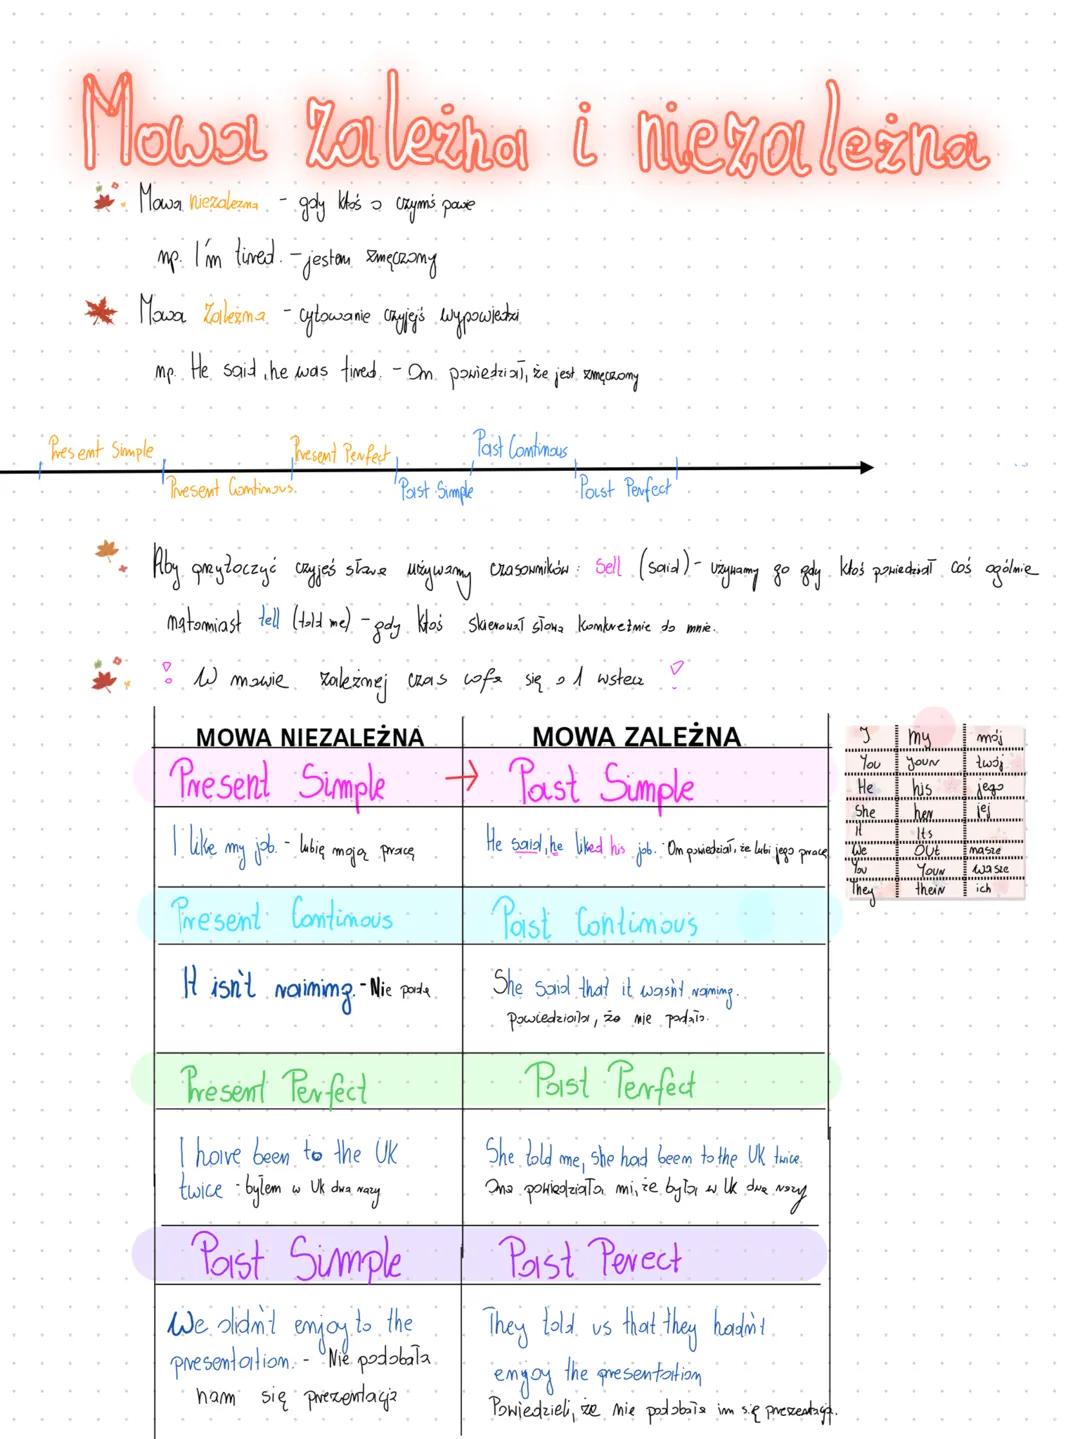 Mowa zależna i niezależna
Mowa niezależna - gdy ktoś o czymś powie
np. I'm tired. - jestem zmęczony
Mowa Zależna - cytowanie czyjejś wypowiedzi
np. He said, he was tired. - On powiedział, że jest zmęczony
Present Simple Present Perfect Past Continous
Present Continous. Past Simple Past Perfect
Aby przytoczyć czyjeś słowa używamy czasowników: sell (said) - używamy go gdy ktoś powiedział coś ogólnie
natomiast tell (told me) - gdy ktoś skierował słowa konkretnie do mnie.
! W mowie zależnej czas cofa się o 1 wstecz !
MOWA NIEZALEŻNA MOWA ZALEŻNA
Present Simple → Past Simple
I like my job. - lubię moją pracę He said, he liked his job. - On powiedział, że lubi jego pracę
Present Continous Past Continous
It isn't raining. - Nie pada She said that it wasn't raining.
Powiedziała, że nie padało.
Present Perfect Past Perfect
I have been to the UK She told me, she had been to the UK twice.
twice - byłem w UK dwa razy Ona powiedziała mi, że była w UK dwa razy
Past Simple Past Perect
We didn't enjoy to the They told us that they hadn't
presentation. - Nie podobała enjoy the presentation
nam się prezentacja Powiedzieli, że nie podobała im się prezentacja.
I my mój
You your twój
He his jego
She her jej
It Its
We Out nasze
You Your wasze
They their ich